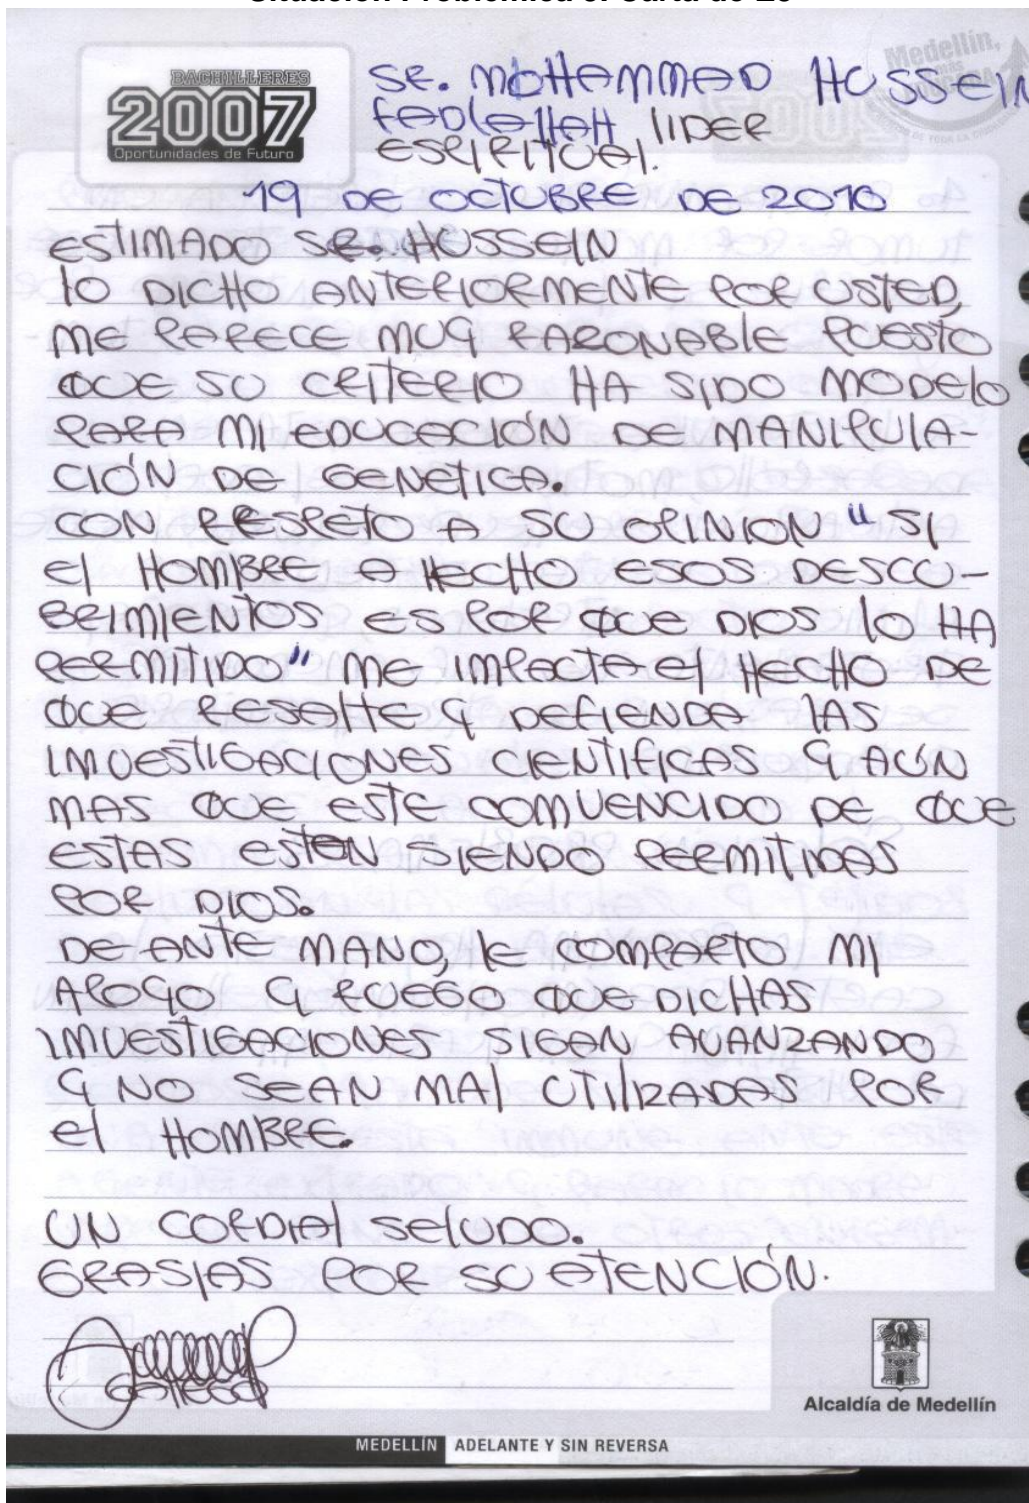 BACHILLERES
2007
Oportunidades de Futuro
SR. MOHAMMAD HUSSEIN
FADLALLAH LIDER
ESPIRITUAL.
19 DE OCTUBRE DE 2010
ESTIMADO SR. HUSSEIN
LO DICHO ANTERIORMENTE POR USTED,
ME PARECE MUY RAZONABLE PUESTO
QUE SU CRITERIO HA SIDO MODELO
PARA MI EDUCACIÓN DE MANIPULA-
CIÓN DE GENÉTICA.
CON RESPETO A SU OPINION "SI
EL HOMBRE A HECHO ESOS DESCU-
BRIMIENTOS ES POR QUE DIOS LO HA
PERMITIDO" ME IMPACTA EL HECHO DE
QUE RESALTE Y DEFIENDA LAS
INVESTIGACIONES CIENTIFICAS Y AÚN
MAS QUE ESTE COMVENCIDO DE QUE
ESTAS ESTEN SIENDO PERMITIDAS
POR DIOS.
DE ANTE MANO, LE COMPARTO MI
APOYO Y RUEGO QUE DICHAS
IMVESTIGACIONES SIGAN AVANZANDO
Y NO SEAN MAL UTILIZADAS POR
EL HOMBRE.
UN CORDIAL SALUDO.
GRASIAS POR SU ATENCIÓN.
Alcaldía de Medellín
MEDELLÍN ADELANTE Y SIN REVERSA